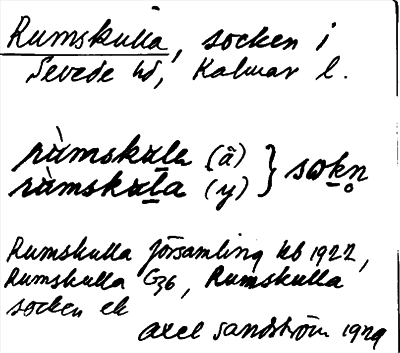 Rumskulla, socken i
Sevede hd, Kalmar l.
ràmskula (ä) } sokn
ràmskula (y)
Rumskulla församling kb 1922,
Rumskulla G36, Rumskulla
socken ek
Axel Sandström 1929